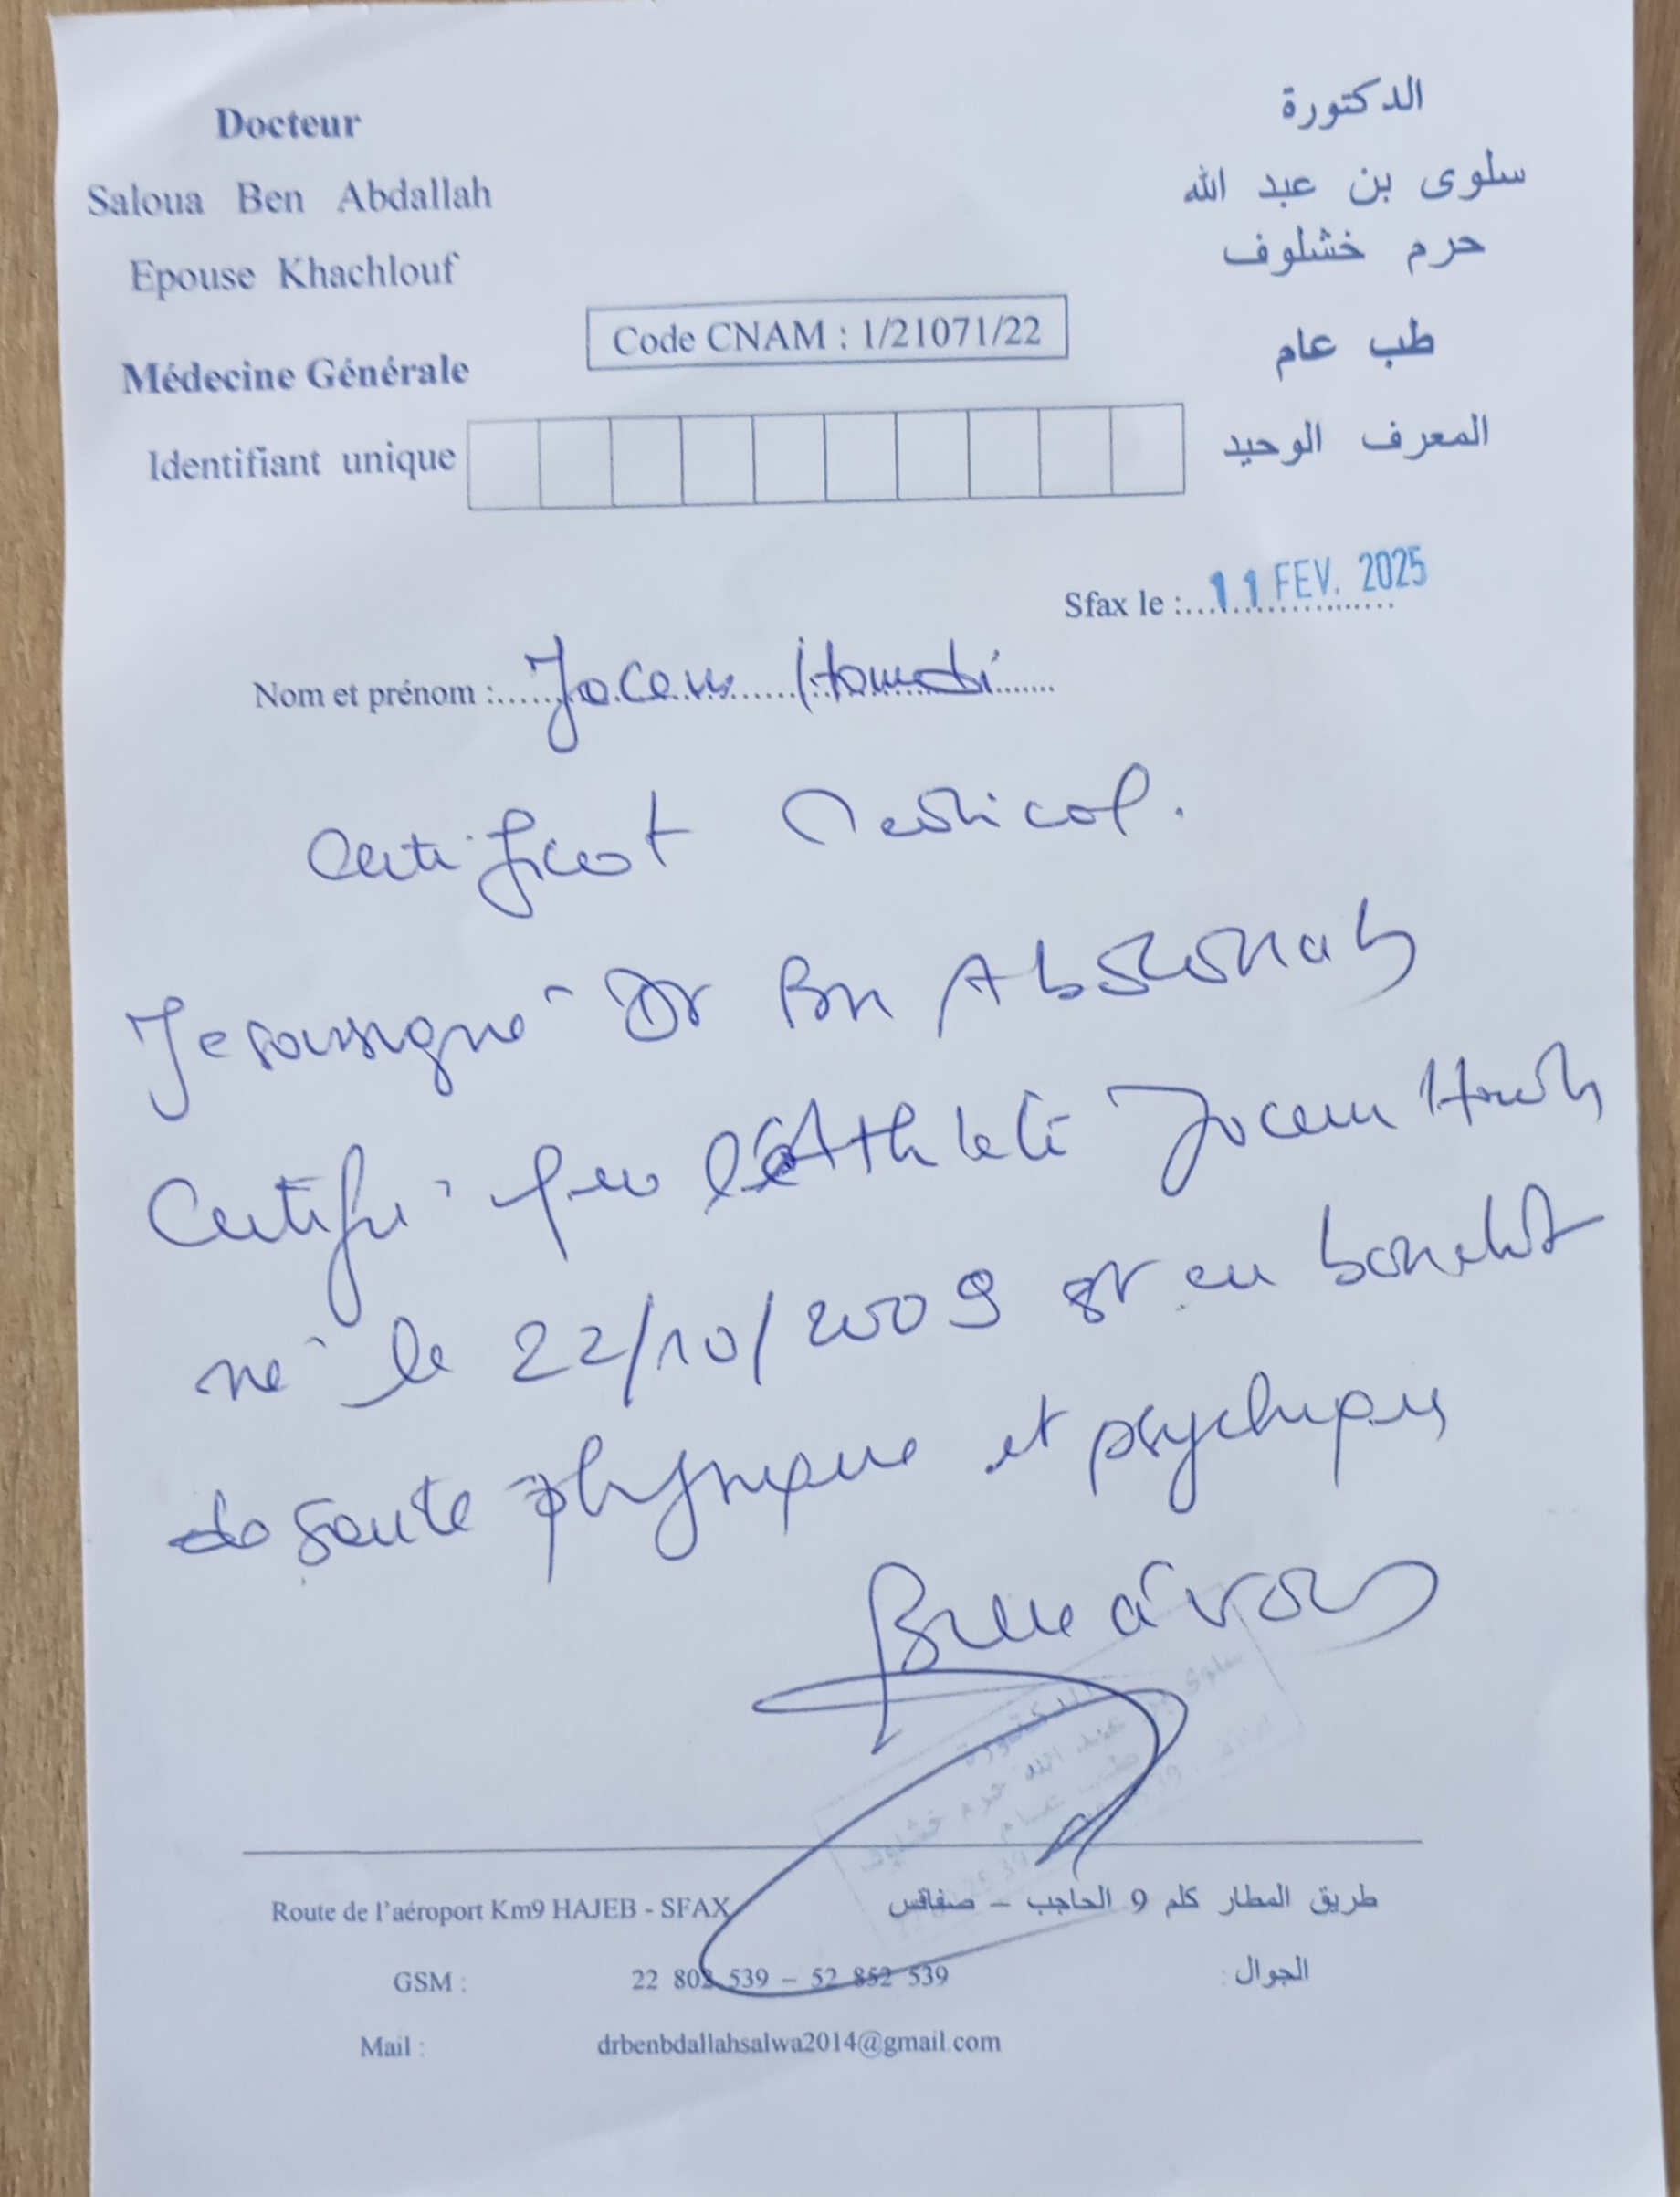 Docteur
Saloua Ben Abdallah
Epouse Khachlouf
Médecine Générale
الدكتورة
سلوى بن عبد الله
حرم خشلوف
طب عام
Code CNAM : 1/21071/22
Identifiant unique المعرف الوحيد
Sfax le : 11 FEV. 2025
Nom et prénom :
Certificat Medical.
Je soussigné Dr Ben Abdallah
Certifie que l'Athlete
né le 22/10/2009 est en bon etat
de santé physique et psychique
الدكتورة
سلوى بن عبد الله حرم خشلوف
طب عام
Route de l'aéroport Km9 HAJEB - SFAX طريق المطار كلم 9 الحاجب – صفاقس
GSM : 22 802 539 – 52 852 539 الجوال :
Mail : drbenbdallahsalwa2014@gmail.com